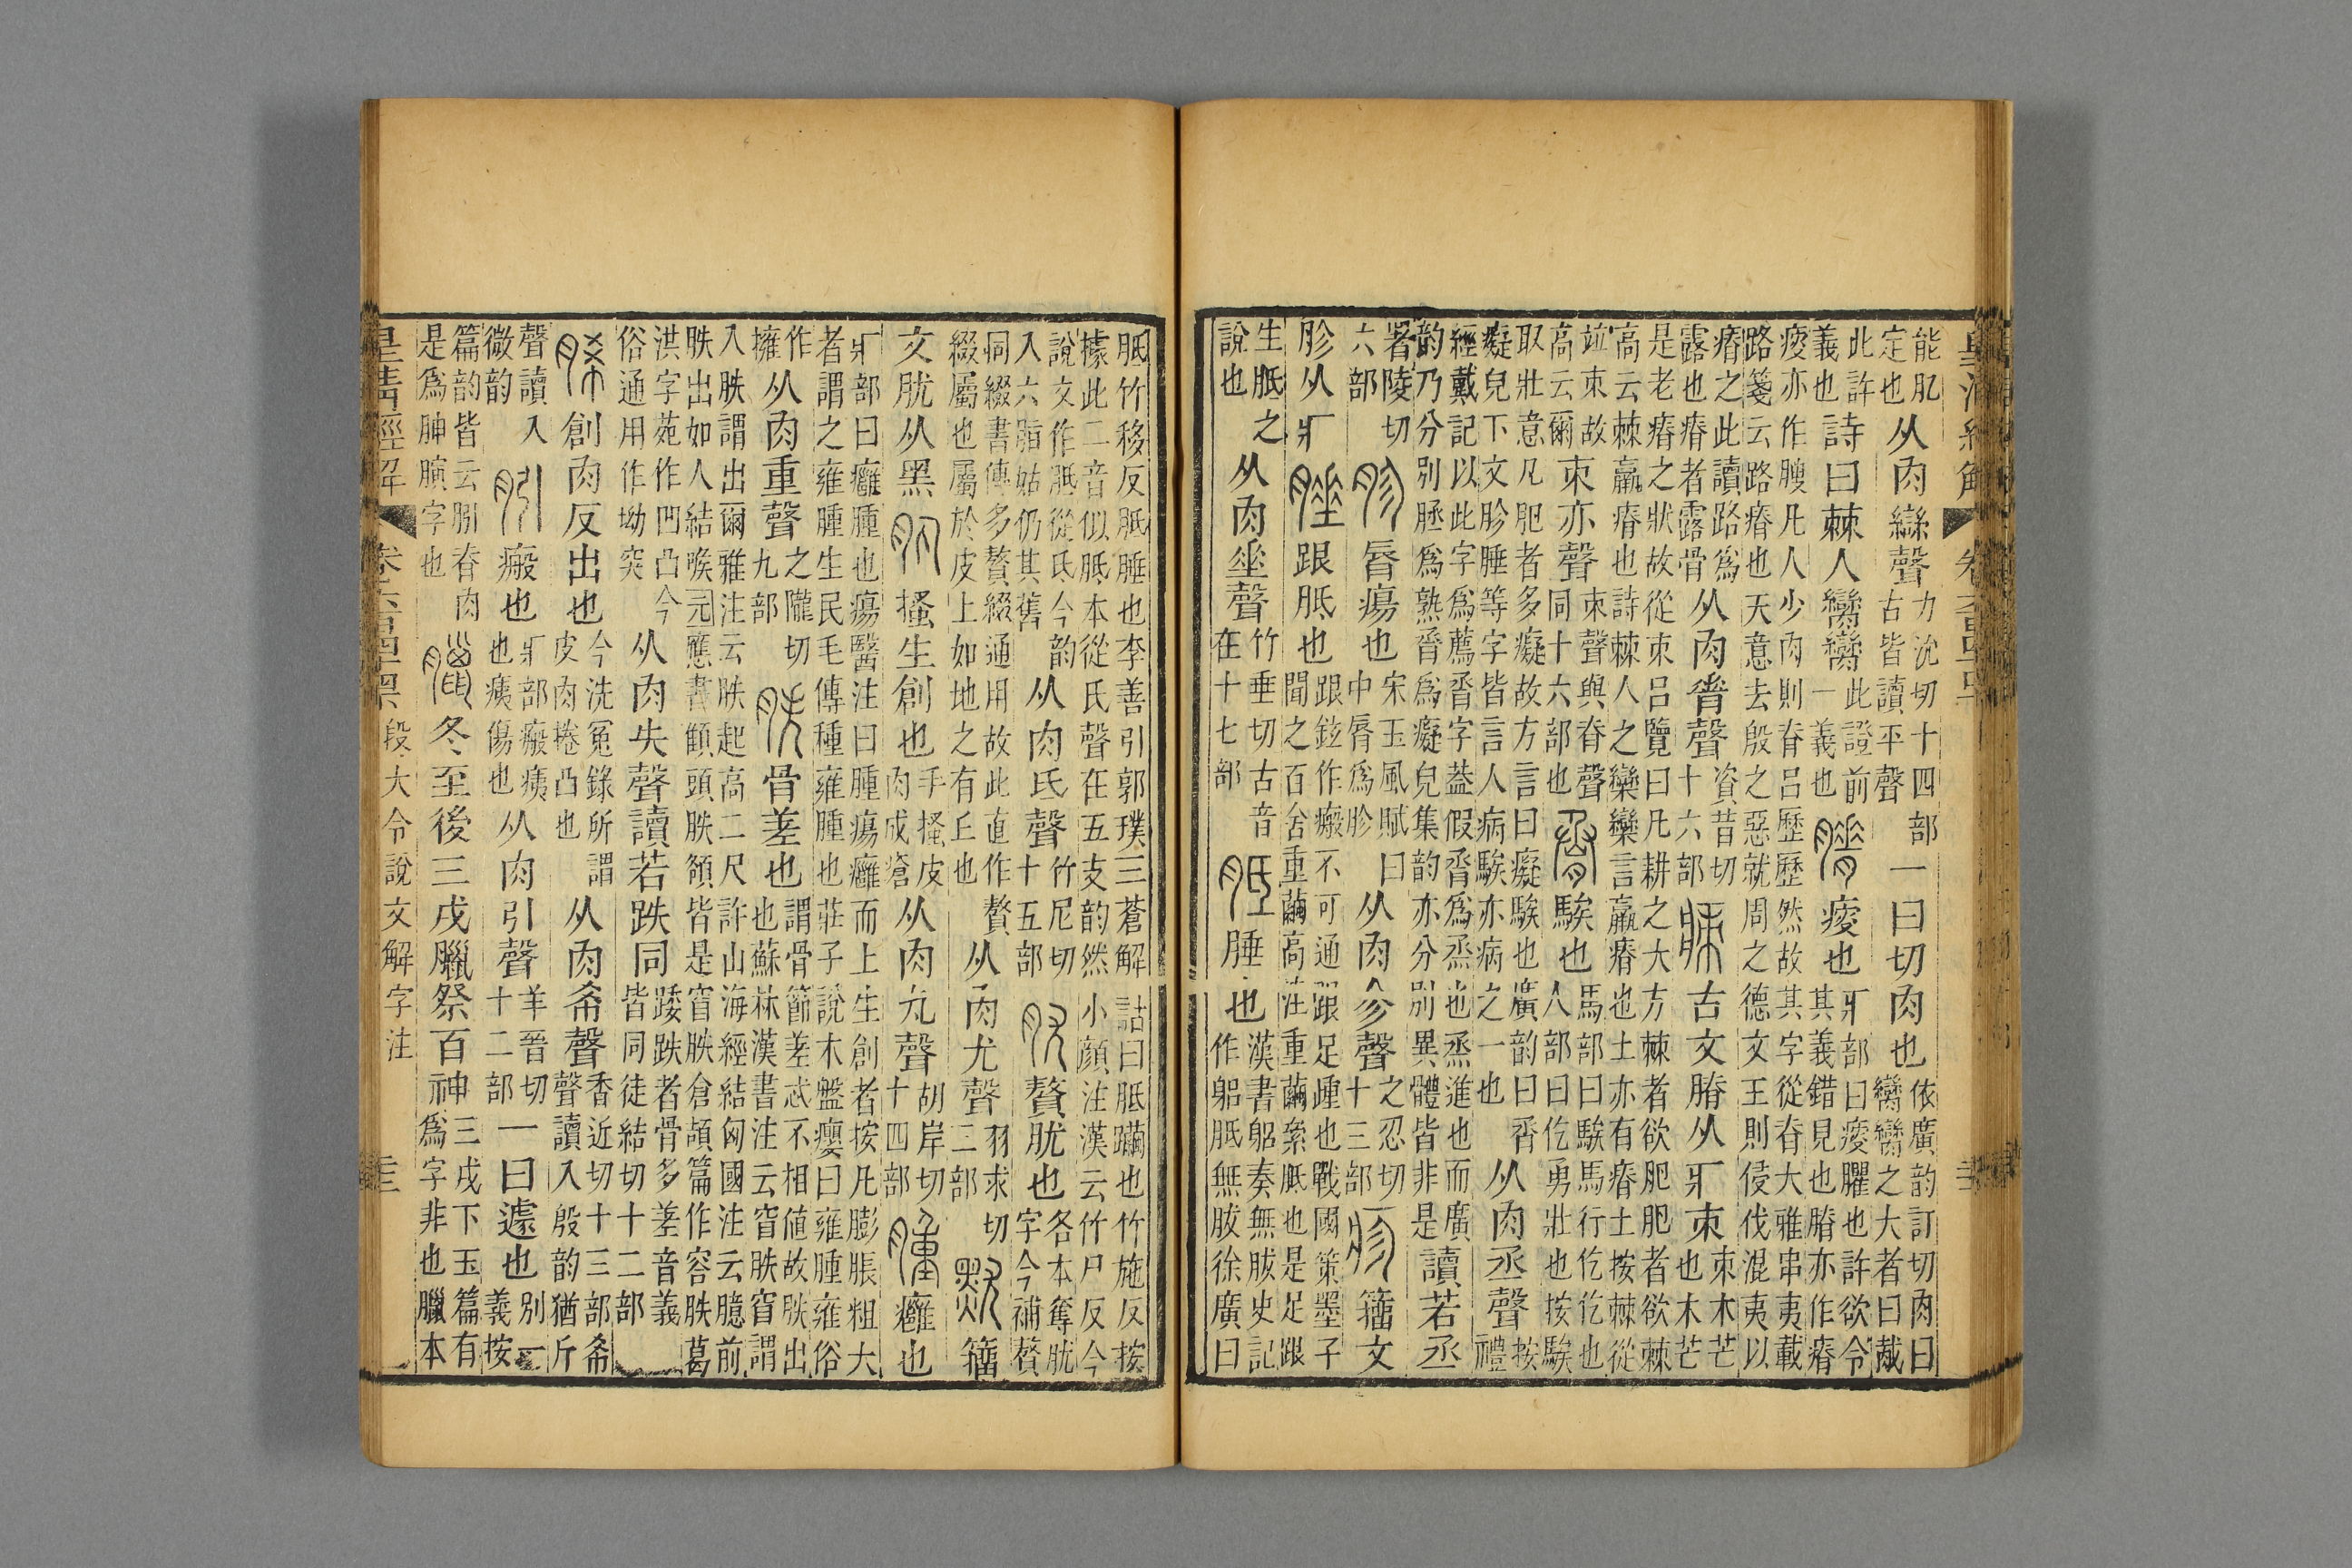 皇清經解
能肊定也从肉䜌聲力沇切十四部古皆讀平聲一曰切肉也依廣韵訂切肉曰臠臠之大者曰胾
此許義也詩曰棘人臠臠此證前一義也膌瘦也疒部曰瘦臞也許欲令其義錯見也膌亦作瘠
瘦亦作膄凡人少肉則脊呂歷歷然故其字從脊大雅串夷載
路箋云路瘠也天意去殷之惡就周之德文王則侵伐混夷以
瘠之此讀路爲露也瘠者露骨从肉脊聲資昔切十六部𤶒古文膌从疒朿朿木芒也木芒
是老瘠之狀故從朿呂覽曰凡耕之大方棘者欲肥肥者欲棘
高云棘羸瘠也詩棘人之欒欒言羸瘠也土亦有瘠土按棘從
竝朿故高云爾朿亦聲朿聲與脊聲同十六部也脀騃也馬部曰騃馬行仡仡也人部曰仡勇壯也按騃
取壯意凡肥者多癡故方言曰癡騃也廣韵曰脀
癡皃下文胗腄等字皆言人病騃亦病之一也从肉丞聲按禮
經戴記以此字爲薦脀字葢假脀爲烝也烝進也而廣
韵乃分別脀爲熟脀爲癡皃集韵亦分別異體皆非是讀若丞
署陵切六部胗脣瘍也宋玉風賦曰中脣爲胗从肉㐱聲之忍切十三部疹籒文
胗从疒腄跟胝也跟鉉作瘢不可通跟足踵也戰國策墨子閒之百舍重繭高注重繭絫胝也是足跟
生胝之說也从肉垂聲竹垂切古音在十七部胝腄也漢書躬奏無胈史記作躬胝無胈徐廣曰
胝竹移反胝腄也李善引郭璞三蒼解詁曰胝躢也竹施反按
據此二音似胝本從氏聲在五支韵然小顏注漢云竹尸反今
說文作胝從氐今韵入六脂姑仍其舊从肉氐聲竹尼切十五部肬贅肬也各本奪肬字今補贅
同綴書傳多贅綴通用故此直作贅綴屬也屬於皮上如地之有丘也从肉尤聲羽求切二部𪐕籒
文肬从黑肒搔生創也手搔皮肉成瘡从肉丸聲胡岸切十四部腫癰也
疒部曰癰腫也瘍醫注曰腫瘍癰而上生創者按凡膨脹粗大
者謂之雍腫生民毛傳種雍腫也莊子說木盤癭曰雍腫雍俗
作擁从肉重聲之隴切九部胅骨差也謂骨節差忒不相値故胅出也蘇林漢書注云窅胅窅謂
入胅謂出爾雅注云胅起高二尺許山海經結匈國注云臆前
胅出如人結喉元應書顀頭胅頟皆是窅胅倉頡篇作容胅葛
洪字苑作凹凸今俗通用作坳突从肉失聲讀若跌同踒跌者骨多差音義皆同徒結切十二部
脪創肉反出也今洗冤錄所謂皮肉捲凸也从肉希聲香近切十三部希聲讀入殷韵猶斤
聲讀入微韵䏖瘢也疒部瘢痍也痍傷也从肉引聲羊晉切十二部一曰遽也別一義按
篇韵皆云䏖脊肉是爲胂䐠字也臘冬至後三戌臘祭百神三戌下玉篇有爲字非也臘本
皇清經解 卷六百四十四 段大令說文解字注